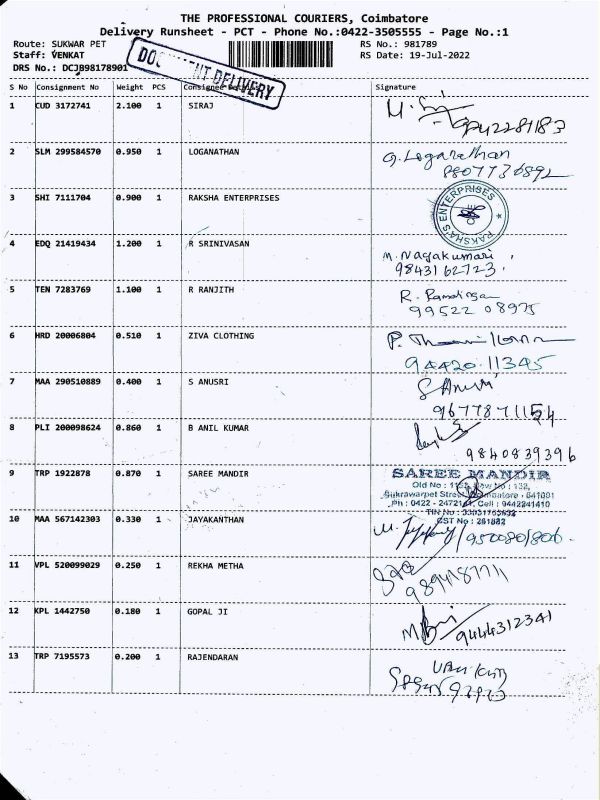 THE PROFESSIONAL COURIERS, Coimbatore
Delivery Runsheet - PCT - Phone No.:0422-3505555 - Page No.:1
Route: SUKWAR PET
RS No.: 981789
Staff: VENKAT
RS Date: 19-Jul-2022
DRS No.: DCJB98178901
DELIVERY
S No Consignment No Weight PCS Consignee Details Signature
1 CUD 3172741 2.100 1 SIRAJ
9442281183
2 SLM 299584570 0.950 1 LOGANATHAN G. Loganathan
3 SHI 7111704 0.900 1 RAKSHA ENTERPRISES
RAKSHA'S ENTERPRISES
4 EDQ 21419434 1.200 1 R SRINIVASAN M. Nagakumari
9843162723.
5 TEN 7283769 1.100 1 R RANJITH R.
99522 08975
6 HRD 20006804 0.510 1 ZIVA CLOTHING P.
94420 11345
7 MAA 290510889 0.400 1 S ANUSRI S Anusri
9677871154
8 PLI 200098624 0.860 1 B ANIL KUMAR
9840839396
9 TRP 1922878 0.870 1 SAREE MANDIR SAREE MANDIR
Old No : New No : 132,
Sukrawarpet Street, Coimbatore - 641001
Ph : 0422 - Cell : 9442241410
TIN No :
CST No :
10 MAA 567142303 0.330 1 JAYAKANTHAN
11 VPL 520099029 0.250 1 REKHA METHA
12 KPL 1442750 0.180 1 GOPAL JI
9444312341
13 TRP 7195573 0.200 1 RAJENDARAN